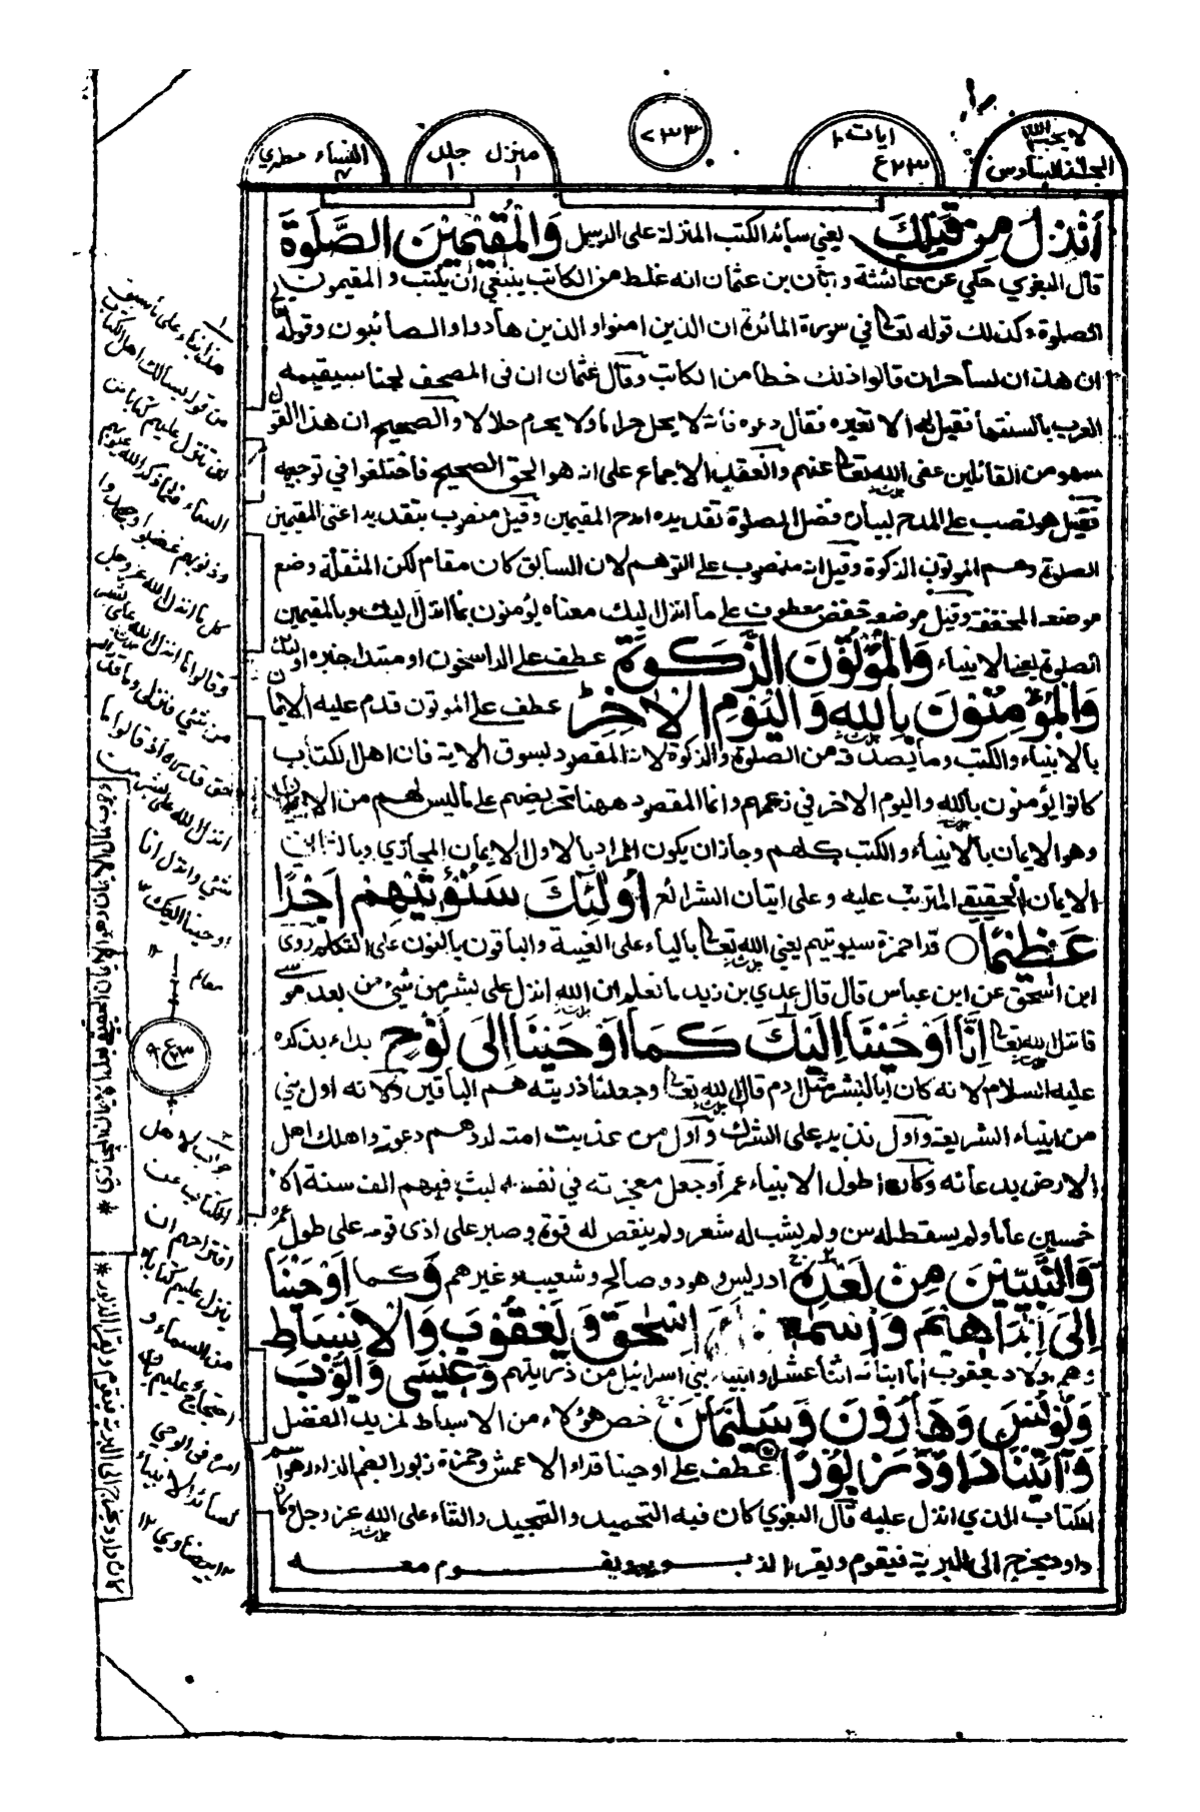 لا يحب الله
الجزء السادس
ايات
٢٣ع
٧٣٣
منزل ١ جلد ١
النساء ٤ مظهري
أُنْزِلَ مِنْ قَبْلِكَ يعني سائر الكتب المنزلة على الرسل وَالْمُقِيْمِيْنَ الصَّلٰوةَ
قال البغوي حكي عن عائشة وابان بن عثمان انه غلط من الكاتب ينبغي أن يكتب والمقيمون
الصلوة وكذلك قوله تعالى في سورة المائدة ان الذين امنوا والذين هادوا والصائبون وقوله
ان هذان لساحران قالوا ذلك خطأ من الكاتب وقال عثمان ان فى المصحف لحنا سيقيمه
العرب بالسنتها فقيل له الا تغيره فقال دعوه فأنه لا يحل حراما ولا يحرم حلالا والصحيح ان هذا القول
سهو من القائلين عفى الله تعالى عنهم وانعقد الاجماع على انه هو الحق الصحيح فاختلفوا في توجيهه
فقيل هو نصب على المدح لبيان فضل الصلوة تقديره امدح المقيمين وقيل منصوب بتقدير اعنى المقيمين
الصلوة وهم المؤتون الزكوة وقيل انه منصوب على التوهم لان السابق كان مقام لكن المثقلة وضع
موضعه المخففة وقيل موضعه خفض معطوف على ما انزل اليك معناه يؤمنون بما انزل اليك وبالمقيمين
الصلوة يعنى الانبياء وَالْمُؤْتُوْنَ الزَّكٰوةَ عطف على الراسخون او مبتدا خبره اولئك
وَالْمُؤْمِنُوْنَ بِاللهِ وَالْيَوْمِ الْاٰخِرِ عطف على المؤتون قدم عليه الايمان
بالانبياء والكتب وما يصدقه من الصلوة والزكوة لانه المقصود بسوق الاية فان اهل الكتاب
كانوا يؤمنون بالله واليوم الاخر في زعمهم وانما المقصود ههنا تحريضهم على ما ليس لهم من الايمان
وهو الايمان بالانبياء والكتب كلهم وجاز ان يكون المراد بالاول الايمان المجازي وبالثاني
الايمان الحقيقي المترتب عليه وعلى اتيان الشرائع أُولٰئِكَ سَنُؤْتِيْهِمْ اَجْرًا
عَظِيْمًا قرا حمزة سيوتيهم يعني الله تعالى بالياء على الغيبة والباقون بالنون على التكلم روى
ابن اسحق عن ابن عباس قال قال عدي بن زيد ما نعلم ان الله انزل على بشر من شيء من بعد موسى
فانزل الله تعالى اِنَّا اَوْحَيْنَا اِلَيْكَ كَمَا اَوْحَيْنَا اِلٰى نُوْحٍ بداء بذكره
عليه السلام لانه كان ابا للبشر مثل ادم قال الله تعالى وجعلنا ذريته هم الباقين ولانه اول نبي
من انبياء الشريعة واول نذير على الشرك واول من عذبت امته لردهم دعوته واهلك اهل
الارض بدعائه وكان اطول الانبياء عمرا وجعل معجزته في نفسه لبث فيهم الف سنة الا
خمسين عاما ولم يسقط له سن ولم يشب له شعر ولم ينقص له قوة وصبر على اذى قومه على طول عمره
وَالنَّبِيّٖنَ مِنْ بَعْدِهٖ ادريس وهود وصالح وشعيب وغيرهم وَكما اَوْحَيْنَا
اِلٰى اِبْرَاهِيْمَ وَاِسْمٰعِيْلَ وَ اِسْحٰقَ وَ يَعْقُوْبَ وَالْاَسْبَاطِ
وهم اولاد يعقوب اما ابنائه اثنا عشر او انبياء بنى اسرائيل من ذريتهم وَعِيْسٰى وَاَيُّوْبَ
وَيُوْنُسَ وَهَارُوْنَ وَسُلَيْمَانَ خص هؤلاء من الاسباط لمزيد الفضل
وَاٰتَيْنَا دَاوٗدَ زَبُوْرًا عطف على اوحينا قراء الاعمش وحمزة زبورا بضم الزاء وهو اسم
الكتاب الذي انزل عليه قال البغوي كان فيه التحميد والتمجيد والثناء على الله عز وجل كان
داود يخرج الى البرية فيقوم ويقرا الزبور ويقوم معه
١
هذا بناء على ما سبق
من قوله يسألك اهل الكتاب
ان تنزل عليهم كتابا من
السماء فلما ذكر الله عيوبهم
وذنوبهم غضبوا وجحدوا
كل ما انزل الله عز وجل
وقالوا ما انزل الله على بشر
من شيء فنزل وما قدروا الله
حق قدره اذ قالوا ما
انزل الله على بشر من
شيء وانزل انا
اوحينا اليك ١٢
معالم
٢
جواب لاهل
الكتاب عن
اقتراحهم ان
ينزل عليهم كتابا
من السماء و
احتجاج عليهم بان
امره فى الوحي
كسائر الانبياء
١٢ بيضاوي